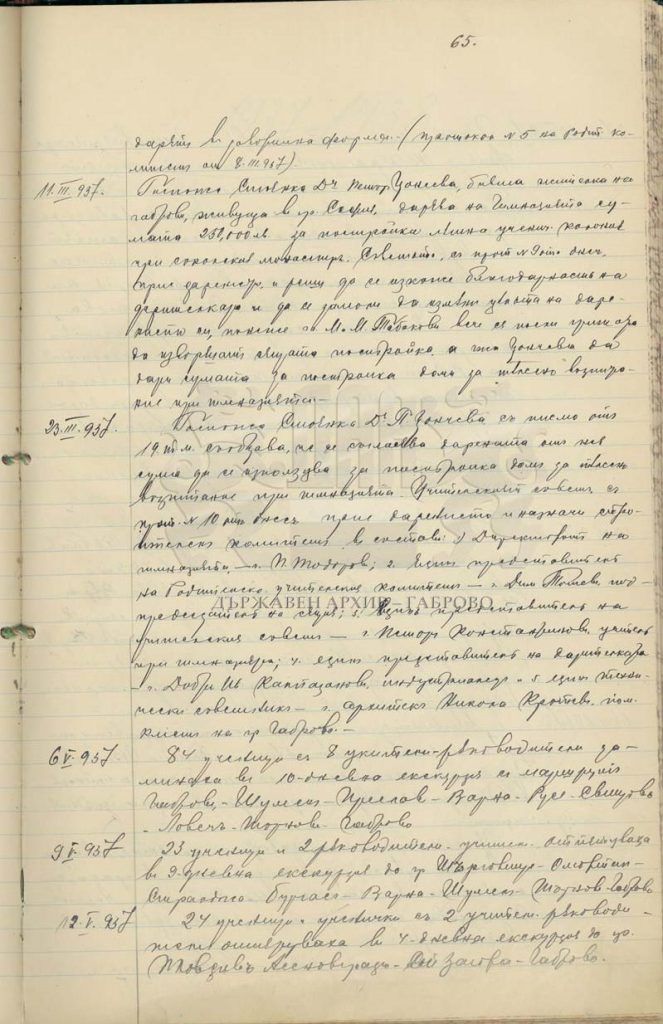 65.
дарятъ въ законна форма. (протоколъ N 5 на Родит. ко-
митетъ отъ 8.III.937)
11.III.937. Госпожа Стоянка Дръ Петър Цончева, бивша жителка на
Габрово, живуща въ гр. София, дарява на Гимназията су-
мата 250,000 лв. за постройка лѣтна ученич. колония
при соколския монастиръ. Съветътъ, съ прот. N 9 отъ
прие дарението и реши да се изкаже благодарность на
дарителката и да се замоли да измѣни целта на даре-
нието си, понеже г. М. Табакова вече се е
да извърши същата постройка, а г-жа Цончева да
дари сумата за постройка домъ за тѣлесно възпита-
ние при гимназията.
23.III.937. Госпожа Стоянка Дръ П. Цончева съ писмо отъ
19 т.м. съобщава, че е съгласна дарената отъ нея
сума да се използува за постройка домъ за тѣлесно
възпитание при гимназията. Учителскиятъ съветъ съ
прот. N 10 отъ днесъ прие дарението и назначи строи-
теленъ комитетъ въ съставъ: 1) Директорътъ на
гимназията – г. П. Тодоровъ; 2. Единъ представитель
на Родителско учителския комитетъ – г. Дим.
председатель на същия; 3. Единъ представитель на
ДЪРЖАВЕН АРХИВ – ГАБРОВО
учителския съветъ – г. Петъръ Константиновъ, учитель
при гимназията; 4. единъ представитель на дарителката
– г. Добри Ив. Каптазановъ, индустриалецъ и 5 единъ техни-
чески съветникъ – г. архитектъ Никола
на гр. Габрово. –
6 V. 937 84 ученици съ 8 учители-рѫководители за-
минаха въ 10-дневна екскурзия съ маршрутъ
Габрово – Шуменъ – Преславъ – Варна – Русе – Свищовъ
– Ловечъ – Търново – Габрово
9 V. 937 23 ученици и 2 рѫководители учител. отпѫтуваха
въ 9-дневна екскурзия до гр. Търговище –
– Бургасъ – Варна – Шуменъ – Търново – Габрово
12. V. 937 24 ученици и ученички съ 2 учител. рѫководи-
тели отпѫтуваха въ 4-дневна екскурзия до гр.
Пловдивъ Асеновградъ – Ст. Загора – Габрово.